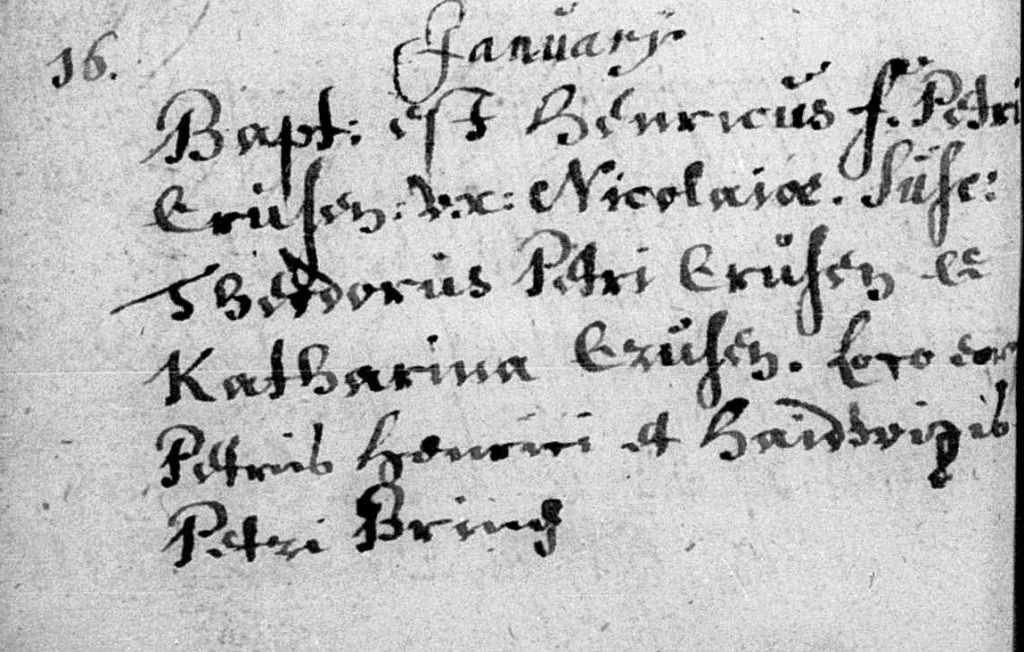 January
16.
Bapt: est Henricus f. Petri
Crüsen: v.x: Nicolaiæ. Süsc:
Theodorus Petri Crüsen &
Katharina Crüsen. Loco eor
Petrus Henrici et Haidwigis
Petri Brinch